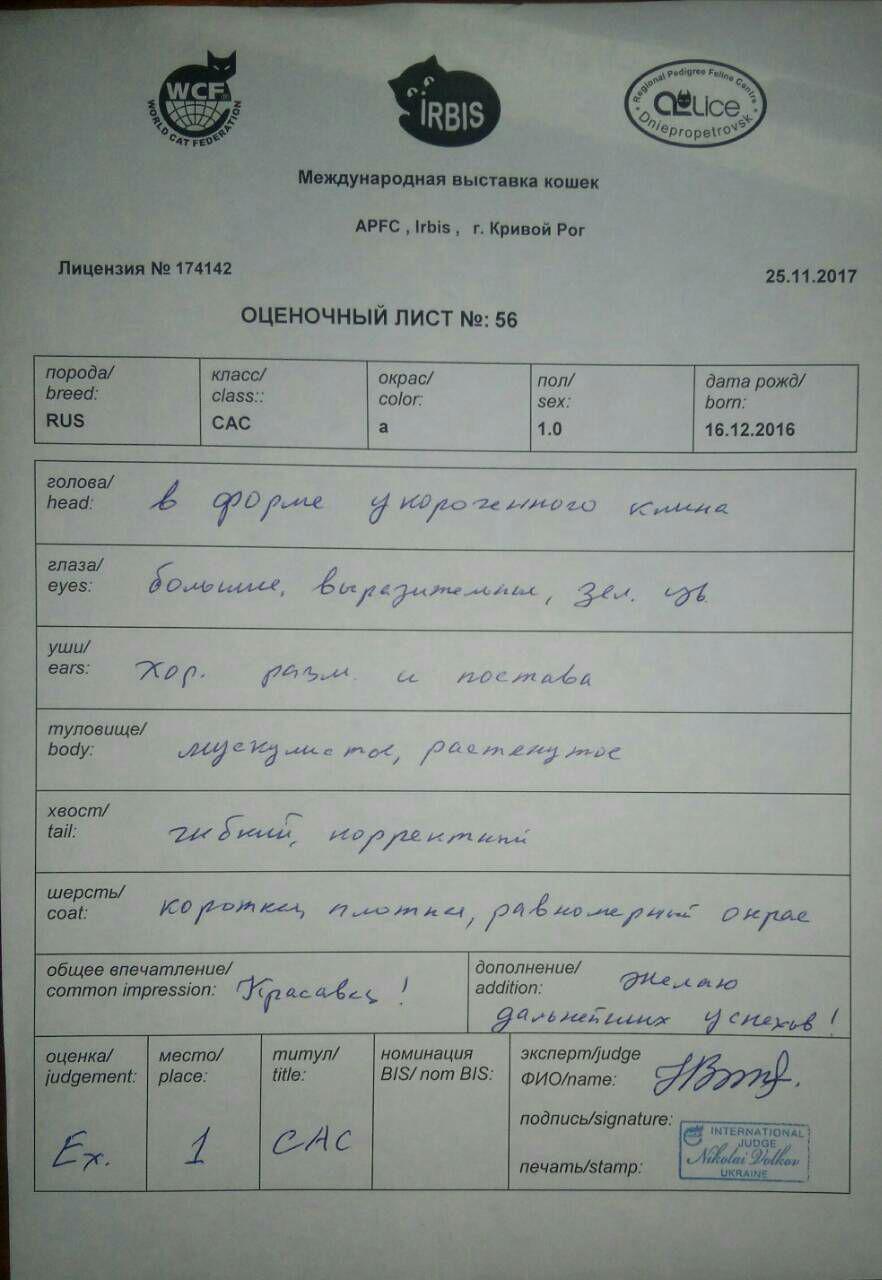 WCF
WORLD CAT FEDERATION
IRBIS
Regional Pedigree Feline Centre
aLice
Dniepropetrovsk
Международная выставка кошек
APFC , Irbis , г. Кривой Рог
Лицензия № 174142
25.11.2017
ОЦЕНОЧНЫЙ ЛИСТ №: 56
порода/
breed:
RUS
класс/
class::
CAC
окрас/
color:
a
пол/
sex:
1.0
дата рожд/
born:
16.12.2016
голова/
head:
в форме укороченного клина
глаза/
eyes:
большие, выразительные, зел. цв.
уши/
ears:
хор. разм. и постава
туловище/
body:
мускулистое, растянутое
хвост/
tail:
гибкий, корректный
шерсть/
coat:
короткая, плотная, равномерный окрас
общее впечатление/
common impression:
Красавец!
дополнение/
addition:
Желаю
дальнейших успехов!
оценка/
judgement:
Ex.
место/
place:
1
титул/
title:
CAC
номинация
BIS/ nom BIS:
эксперт/judge
ФИО/name:
подпись/signature:
печать/stamp:
INTERNATIONAL
JUDGE
Nikolai Volkov
UKRAINE